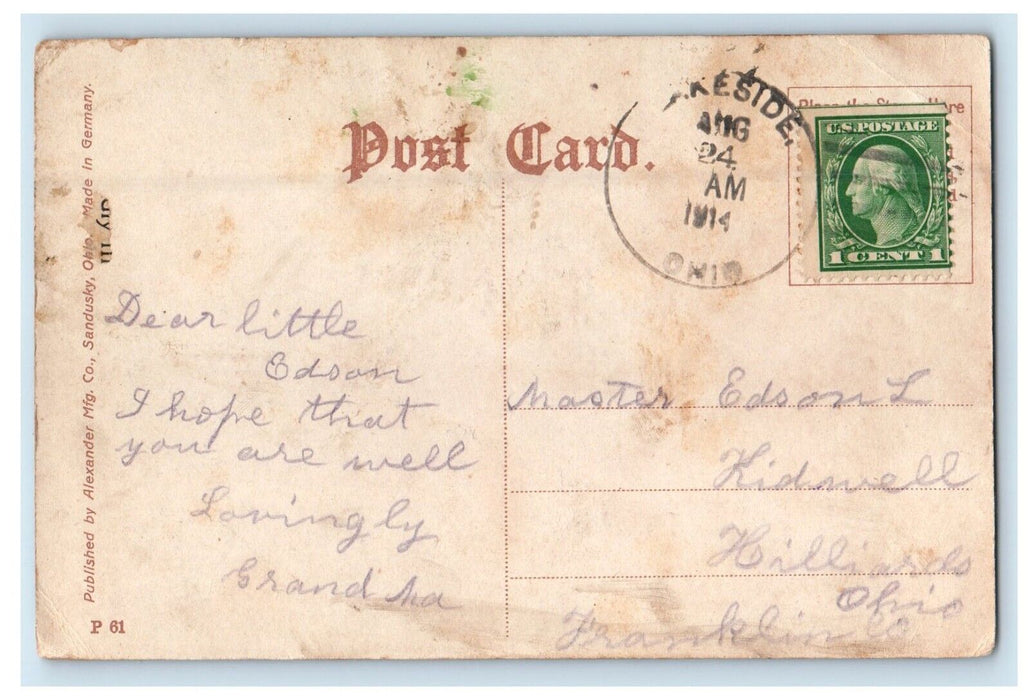 Published by Alexander Mfg. Co., Sandusky, Ohio. Made in Germany.
Post Card.
AKESIDE,
AUG
24
AM
1914
OHIO
Place the Stamp Here
U.S. POSTAGE
1 CENT 1
Dear little
Edson
I hope that
you are well
Lovingly
Grand Ma
Master Edson L
Kidwell
Hilliards
Ohio
Franklin Co
P 61